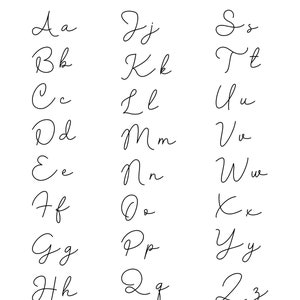 Aa Jj Ss
Bb Kk Tt
Cc Ll Uu
Dd Mm Vv
Ee Nn Ww
Ff Oo Xx
Gg Pp Yy
Hh Qq Zz